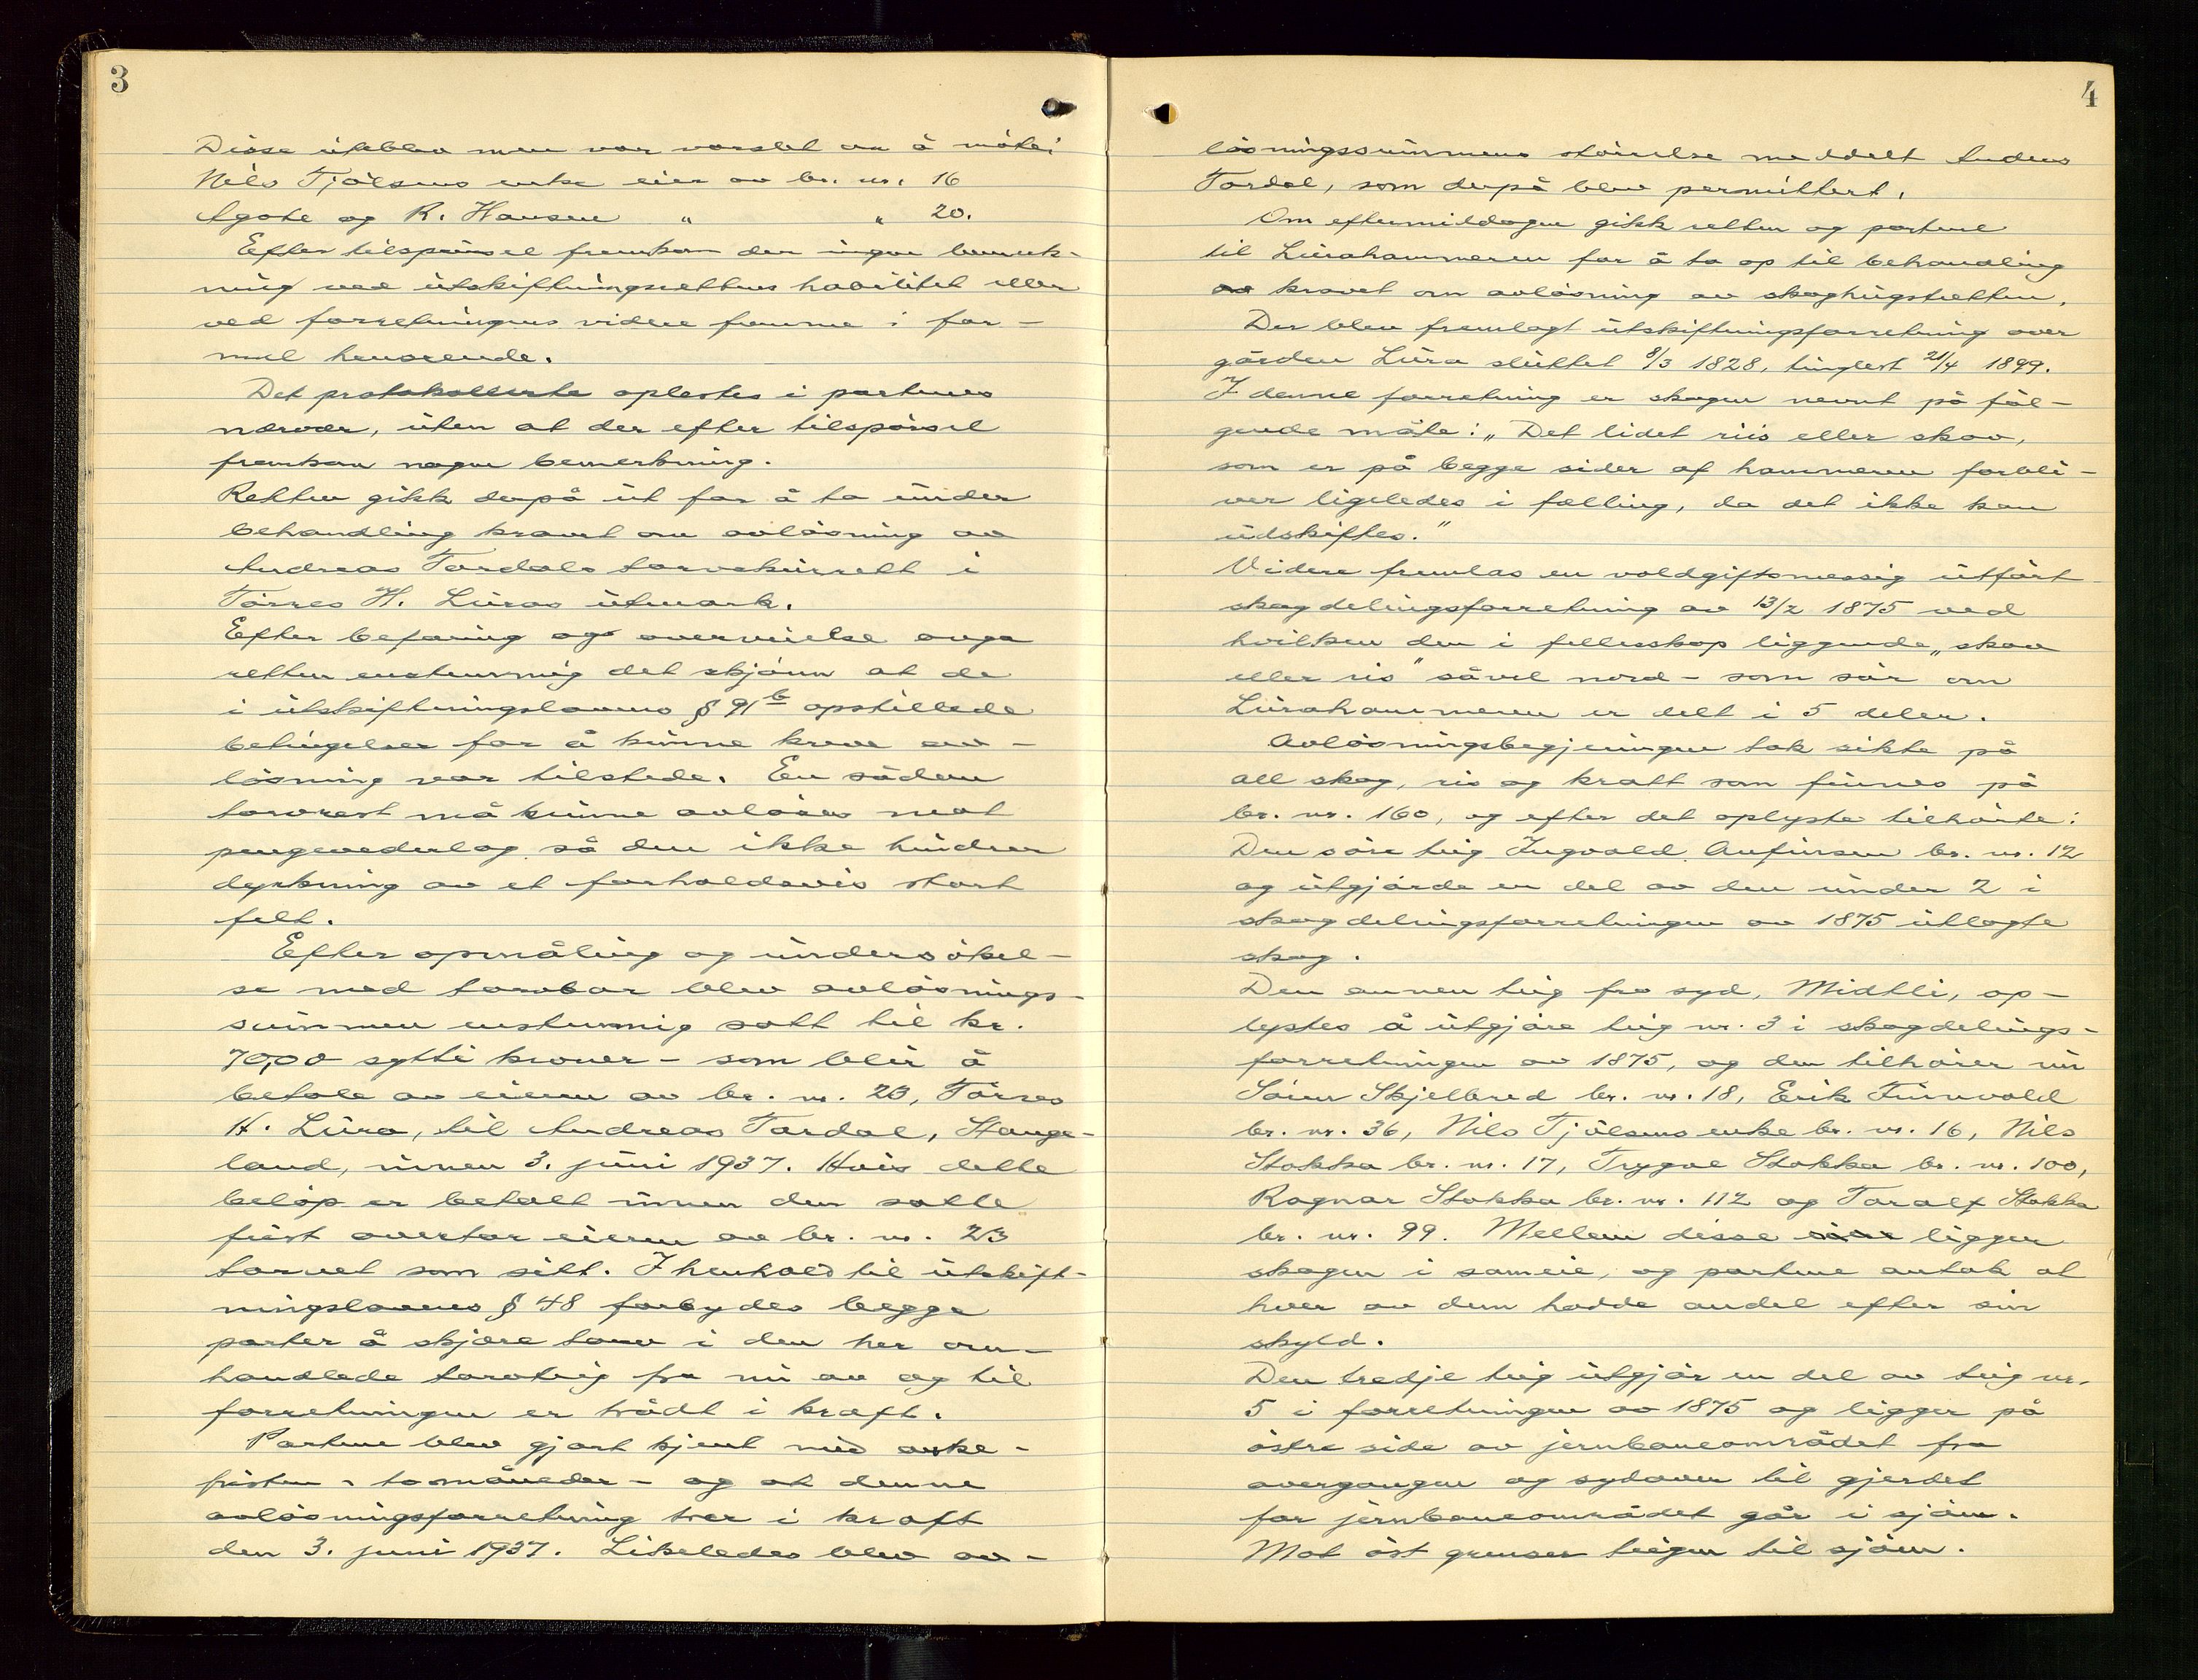 3
Disse uteblev men var varslet om å møte:
Nils Tjølsens enke eier av br. nr. 16
Agote og R. Hansen " " 20.
Efter tilspørsel fremkom der ingen bemerk-
ning ved utskiftningsrettens habilitet eller
ved forretningens videre fremme i for-
mel henseende.
Det protokollerte oplestes i partenes
nærvær, uten at der efter tilspørsel
fremkom nogen bemerkning.
Retten gikk derpå ut for å ta under
behandling kravet om avløsning av
Andreas Tordals torvskurrett i
Tørres H. Luras utmark.
Efter befaring og overveielse avga
retten enstemmig det skjønn at de
i utskiftningslovens § 91 b opstillede
betingelser for å kunne kreve av-
løsning var tilstede. En sådan
torvrest må kunne avløses mot
pengevederlag så den ikke hindrer
dyrkning av et forholdsvis stort
felt.
Efter opmåling og undersøkel-
se med torvbor blev avløsnings-
summen enstemmig satt til kr.
70,00 sytti kroner - som blir å
betale av eieren av br. nr. 23, Tørres
H. Lura, til Andreas Tordal, Stange-
land, innen 3. juni 1937. Hvis dette
beløp er betalt innen den satte
frist overtar eieren av br. nr. 23
torvet som sitt. I henhold til utskift-
ningslovens § 48 forbydes begge
parter å skjære torv i den her om-
handlede torvteig fra nu av og til
forretningen er trådt i kraft.
Partene blev gjort kjent med anke-
fristen - to måneder - og at denne
avløsningsforretning trer i kraft
den 3. juni 1937. Likeledes blev av-
4
løsningssummens størrelse meddelt Anders
Tordal, som derpå blev permittert.
Om eftermiddagen gikk retten og partene
til Lurahammeren for å ta op til behandling
kravet om avløsning av skoghugstretten.
Der blev fremlagt utskiftningsforretning over
gården Lura sluttet 8/3 1828, tinglest 21/4 1899.
I denne forretning er skogen nevnt på føl-
gende måte: „Det lidet riis eller skov,
som er på begge sider af hammeren forbli-
ver ligeledes i fælling, da det ikke kan
udskiftes."
Videre fremlas en voldgiftsmessig utført
skogdelingsforretning av 13/2 1875 ved
hvilken den i fellesskap liggende „skov
eller ris" såvel nord- som sør om
Lurahammeren er delt i 5 deler.
Avløsningsbegjeringen tok sikte på
all skog, ris og kratt som finnes på
br. nr. 160, og efter det oplyste tilhørte:
Den søre teig Ingvald Anfinsen br. nr. 12
og utgjørde en del av den under 2 i
skogdelingsforretningen av 1875 utlagte
skog.
Den annen teig fra syd, Midtli, op-
lystes å utgjøre teig nr. 3 i skogdelings-
forretningen av 1875, og den tilhører nu
Søren Skjelbred br. nr. 18, Erik Finvold
br. nr. 36, Nils Tjølsens enke br. nr. 16, Nils
Stokka br. nr. 17, Trygve Stokka br. nr. 100,
Ragnar Stokka br. nr. 112 og Toralf Stokka
br. nr. 99. Mellem disse ligger
skogen i sameie, og partene antok at
hver av dem hadde andel efter sin
skyld.
Den tredje teig utgjør en del av teig nr.
5 i forretningen av 1875 og ligger på
østre side av jernbaneområdet fra
overgangen og sydover til gjerdet
for jernbaneområdet går i sjøen.
Mot øst grenser teigen til sjøen.